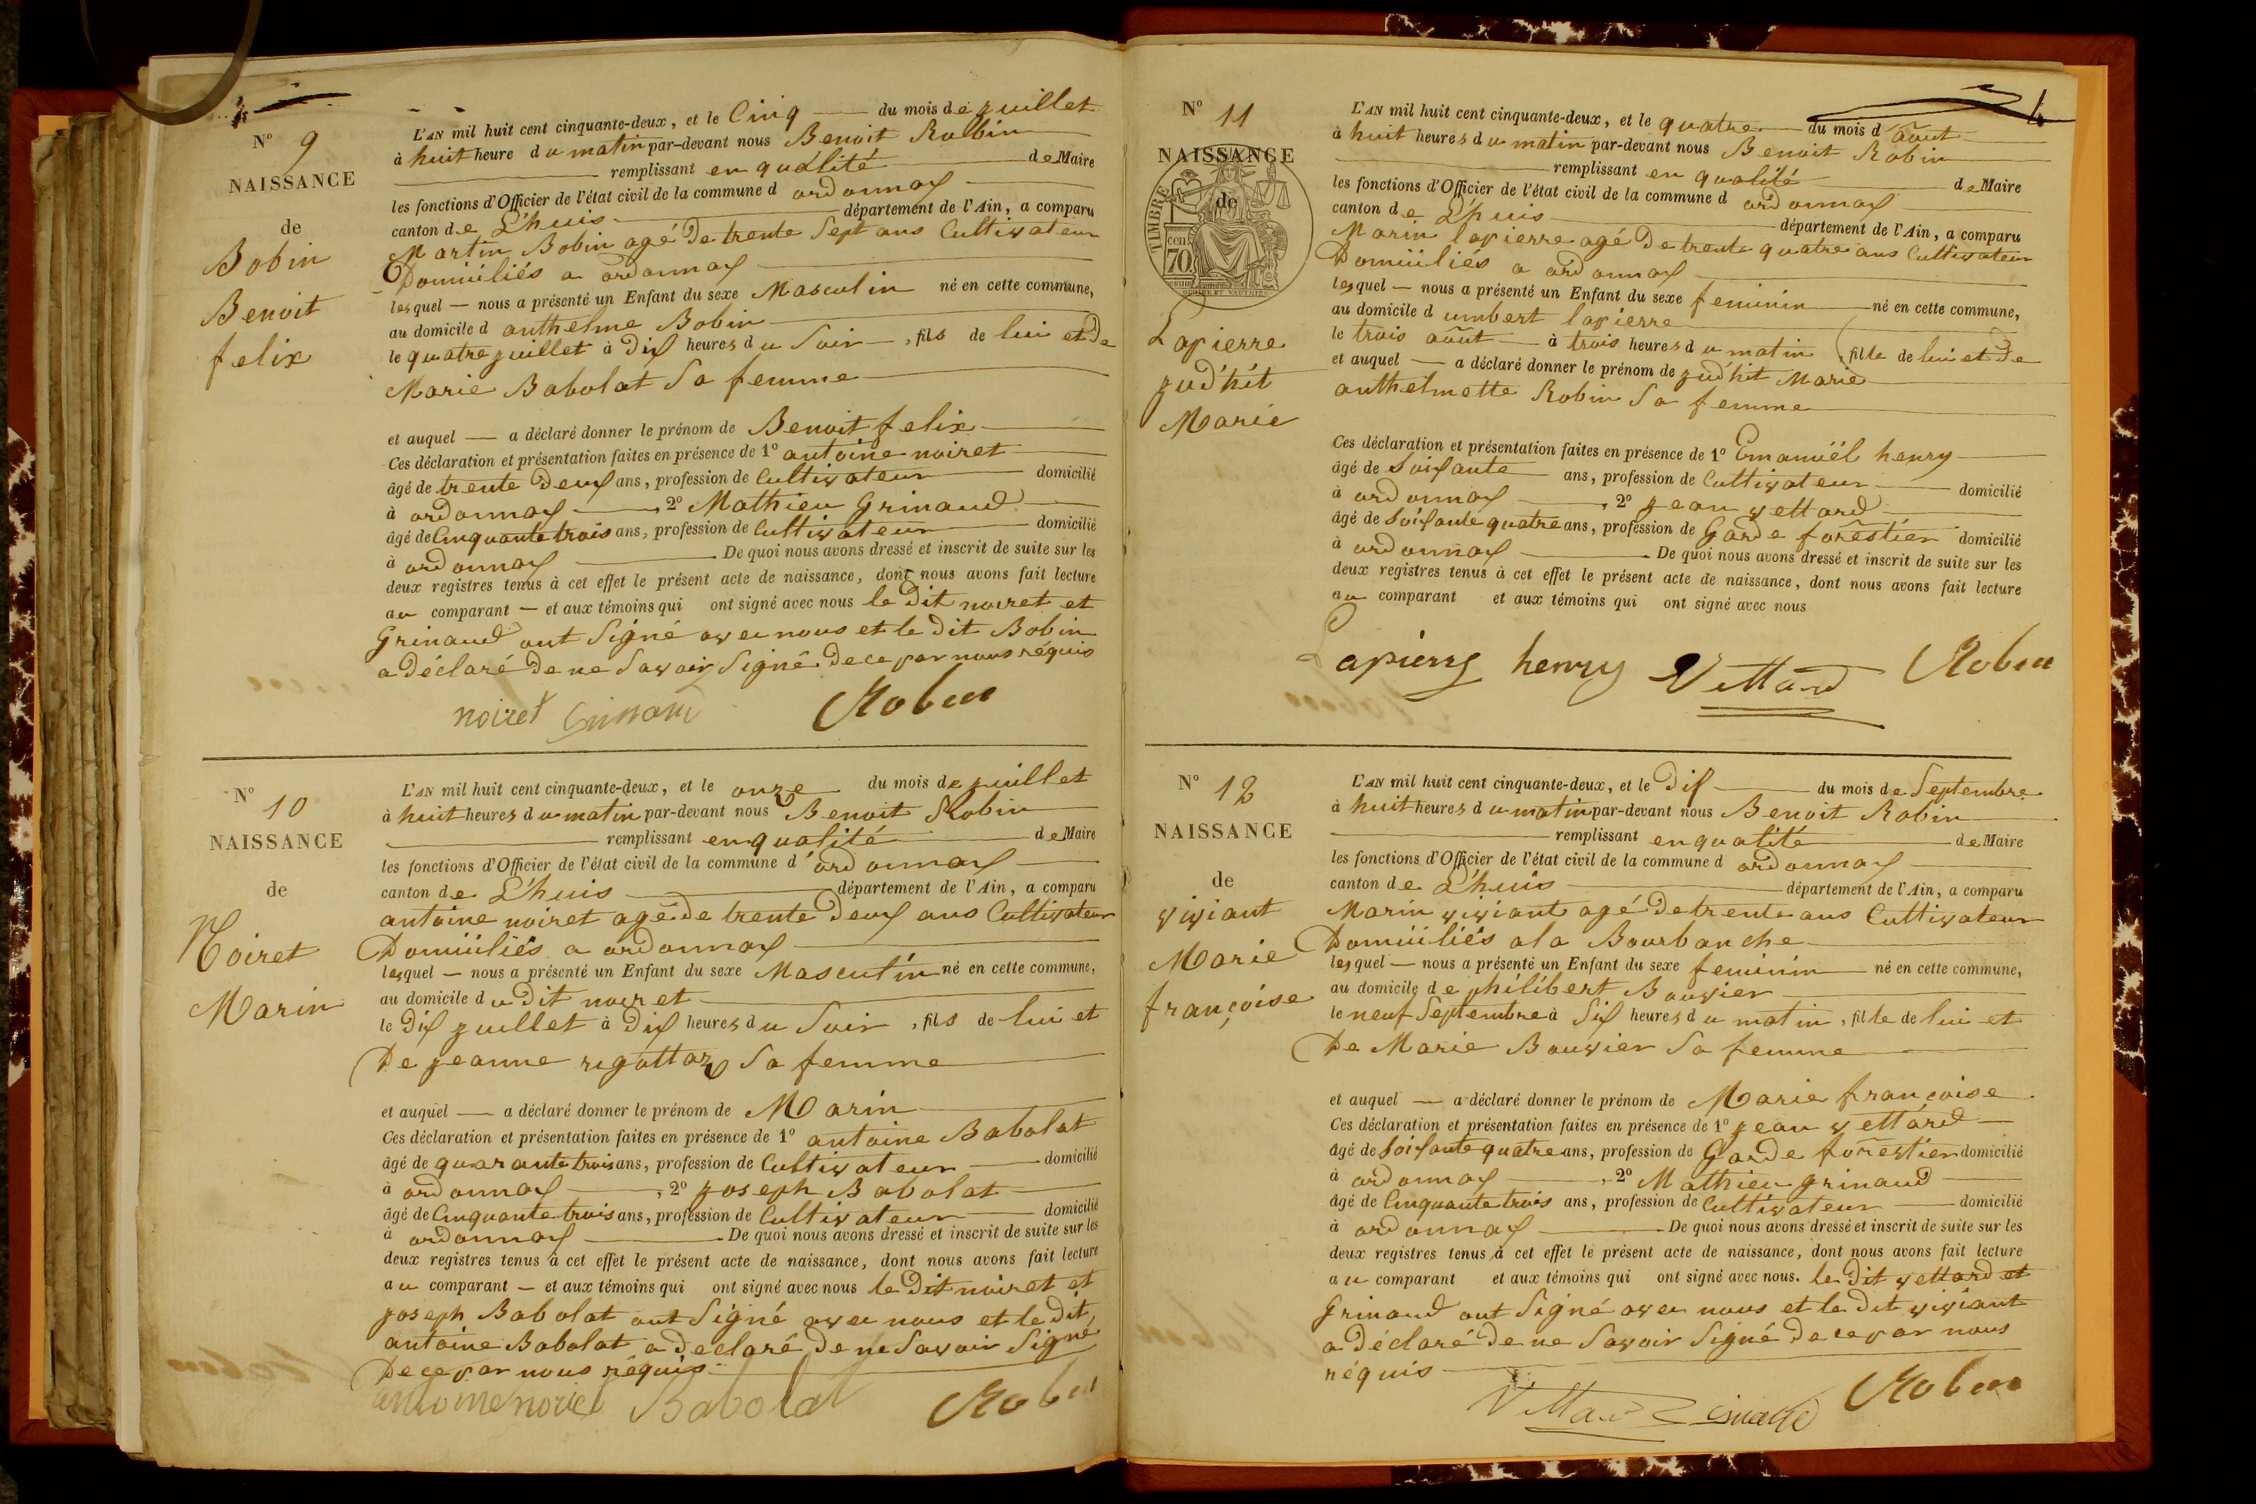 N° 9
NAISSANCE
de
Bobin
Benoit
felix
L'AN mil huit cent cinquante-deux, et le Cinq du mois de juillet
à huit heure du matin par-devant nous Benoit Robin
remplissant en qualité de Maire
les fonctions d'Officier de l'état civil de la commune d ordonnax
canton de L'huis département de l'Ain, a comparu
Martin Bobin agé de trente Sept ans Cultivateur
Domiciliés a ordonnax
lesquel — nous a présenté un Enfant du sexe Masculin né en cette commune,
au domicile d anthelme Bobin
le quatre juillet à Dix heures du Soir, fils de lui et de
Marie Babolat Sa femme
et auquel — a déclaré donner le prénom de Benoit felix
Ces déclaration et présentation faites en présence de 1° antoine noiret
âgé de trente Deux ans, profession de Cultivateur domicilié
à ordonnax, 2° Mathieu Grinaud
âgé de Cinquante trois ans, profession de Cultivateur domicilié
à ordonnax De quoi nous avons dressé et inscrit de suite sur les
deux registres tenus à cet effet le présent acte de naissance, dont nous avons fait lecture
au comparant — et aux témoins qui ont signé avec nous le Dit noiret et
Grinaud ont Signé avec nous et le dit Bobin
a déclaré de ne Savoir Signé de ce par nous réquis
noiret Grinaud Robin
N° 10
NAISSANCE
de
Noiret
Marin
L'AN mil huit cent cinquante-deux, et le onze du mois de juillet
à huit heures du matin par-devant nous Benoit Robin
remplissant en qualité de Maire
les fonctions d'Officier de l'état civil de la commune d'ordonnax
canton de L'huis département de l'Ain, a comparu
antoine noiret agé de trente Deux ans Cultivateur
Domiciliés a ordonnax
lesquel — nous a présenté un Enfant du sexe Masculin né en cette commune,
au domicile du Dit noiret
le Dix juillet à Dix heures du Soir, fils de lui et
De jeanne rigottaz Sa femme
et auquel — a déclaré donner le prénom de Marin
Ces déclaration et présentation faites en présence de 1° antoine Babolat
âgé de quarante trois ans, profession de Cultivateur domicilié
à ordonnax, 2° joseph Babolat
âgé de Cinquante trois ans, profession de Cultivateur domicilié
à ordonnax De quoi nous avons dressé et inscrit de suite sur les
deux registres tenus à cet effet le présent acte de naissance, dont nous avons fait lecture
au comparant — et aux témoins qui ont signé avec nous le Dit noiret et
joseph Babolat ont Signé avec nous et le Dit
antoine Babolat a declaré De ne Savoir Signé
De ce par nous réquis
antoine noiret Babolat Robin
N° 11
NAISSANCE
de
TIMBRE
70 cen
Lapierre
jud'hit
Marie
L'AN mil huit cent cinquante-deux, et le quatre du mois d août
à huit heures du matin par-devant nous Benoit Robin
remplissant en qualité de Maire
les fonctions d'Officier de l'état civil de la commune d ordonnax
canton de L'huis département de l'Ain, a comparu
Marin lapierre agé de trente quatre ans Cultivateur
Domiciliés a ordonnax
lesquel — nous a présenté un Enfant du sexe feminin né en cette commune,
au domicile d umbert lapierre
le trois août à trois heures du matin, fille de lui et de
et auquel — a déclaré donner le prénom de jud'hit Marie
anthelmette Robin Sa femme
Ces déclaration et présentation faites en présence de 1° Emanuël henry
âgé de Soixante ans, profession de Cultivateur domicilié
à ordonnax, 2° jean vettard
âgé de Soixante quatre ans, profession de Garde forestier domicilié
à ordonnax De quoi nous avons dressé et inscrit de suite sur les
deux registres tenus à cet effet le présent acte de naissance, dont nous avons fait lecture
au comparant et aux témoins qui ont signé avec nous
Lapierre henry Vettard Robin
N° 12
NAISSANCE
de
viviant
Marie
françoise
L'AN mil huit cent cinquante-deux, et le Dix du mois de Septembre
à huit heures du matin par-devant nous Benoit Robin
remplissant en qualité de Maire
les fonctions d'Officier de l'état civil de la commune d ordonnax
canton de L'huis département de l'Ain, a comparu
Marin viviant agé de trente ans Cultivateur
Domiciliés a la Bourbanche
lesquel — nous a présenté un Enfant du sexe feminin né en cette commune,
au domicile de philibert Bouvier
le neuf Septembre à Six heures du matin, fille de lui et
De Marie Bouvier Sa femme
et auquel — a déclaré donner le prénom de Marie françoise
Ces déclaration et présentation faites en présence de 1° jean vettard
âgé de Soixante quatre ans, profession de Garde forestier domicilié
à ordonnax, 2° Mathieu grinaud
âgé de Cinquante trois ans, profession de Cultivateur domicilié
à ordonnax De quoi nous avons dressé et inscrit de suite sur les
deux registres tenus à cet effet le présent acte de naissance, dont nous avons fait lecture
au comparant et aux témoins qui ont signé avec nous. le Dit vettard et
Grinaud ont Signé avec nous et le dit viviant
a déclaré de ne Savoir Signé de ce par nous
réquis
Vettard Grinaud Robin